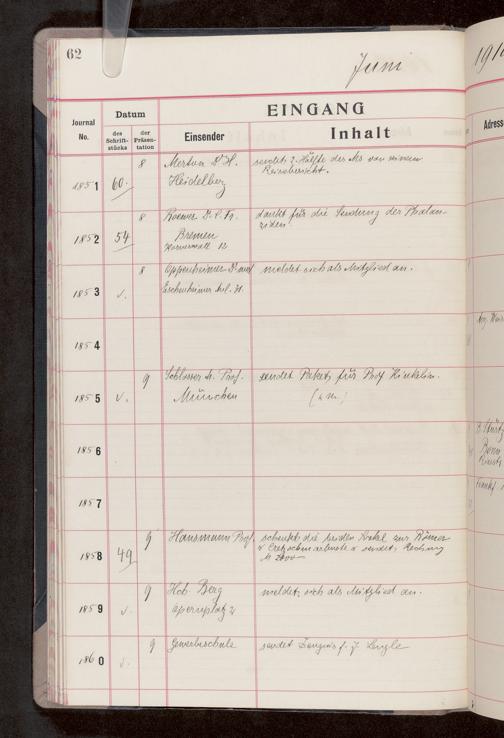 62
Juni
191
EINGANG
Journal No.
Datum
des Schriftstücks
der Präsentation
Einsender
Inhalt
Adress
1851
60.
8
Merton D. H.
Heidelberg
sendet 2. Hälfte des Ms von seinem
Reisebericht.
1852
54
8
Roewer Dr. C. Fr.
Bremen
12
dankt für die Sendung der Phalan-
giden
1853
v.
8
Oppenheimer Dr med
Eschenheimer Anl. 31.
meldet sich als Mitglied an.
1854
1855
v.
9
Schlosser Prof.
München
sendet Paket für Prof Kinkelin.
1856
Bonn
1857
1858
49
9
Hausmann Prof.
schenkt die beiden Sockel zur Römer
& Cretzschmarbüste & sendet Rechnung
M 2400
1859
v.
9
Hch. Berg
Opernplatz 2
meldet sich als Mitglied an.
1860
v.
9
Gewerbeschule
sendet Zeugnis f.